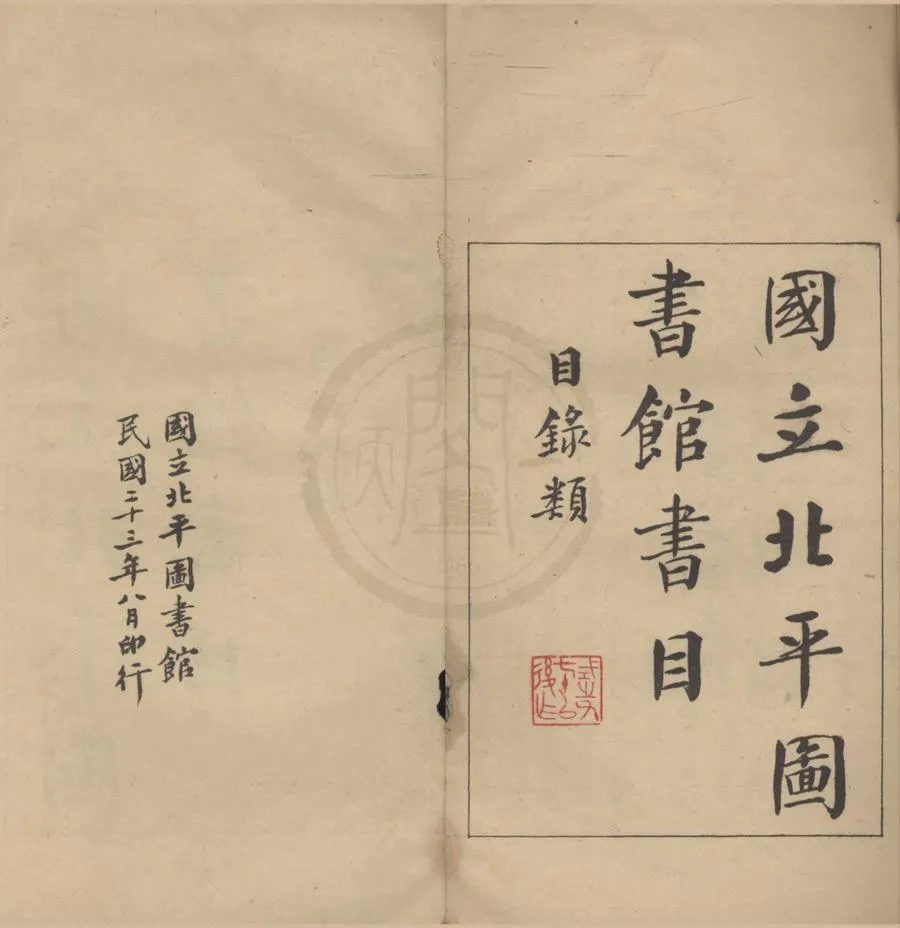 國立北平圖
書館書目
目錄類
國立北平圖書館
民國二十三年八月印行